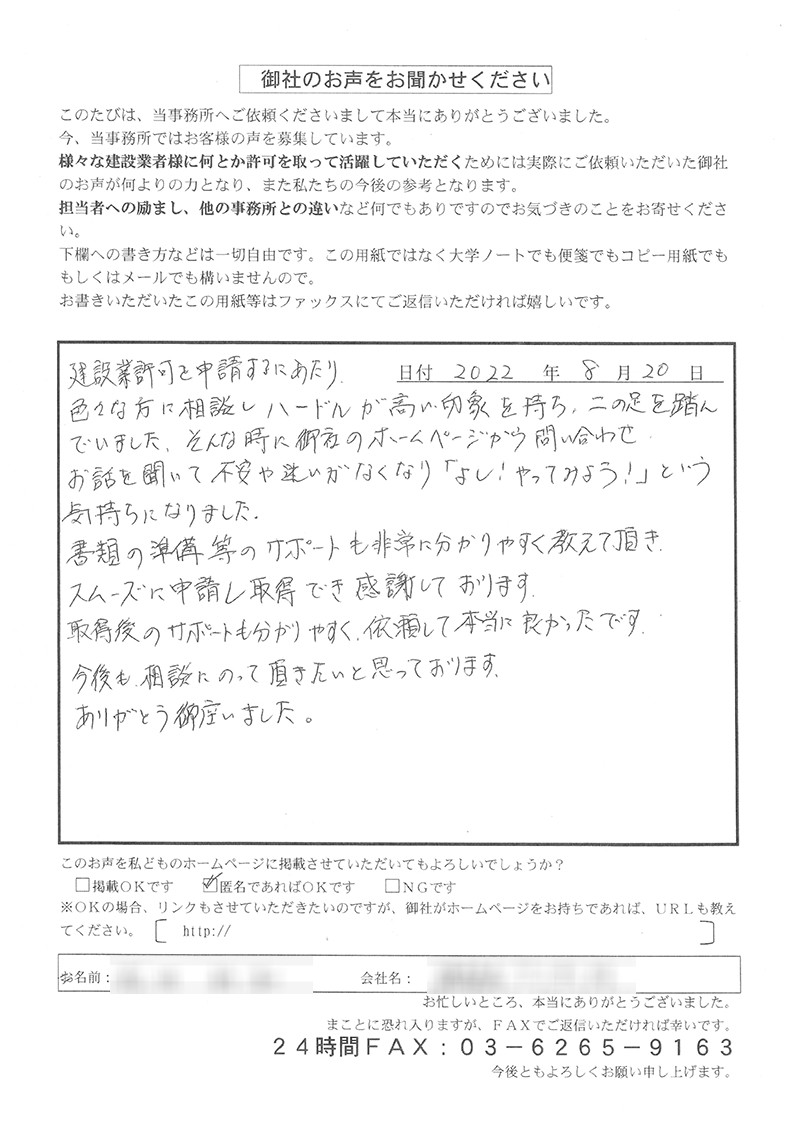 御社のお声をお聞かせください
このたびは、当事務所へご依頼くださいまして本当にありがとうございました。
今、当事務所ではお客様の声を募集しています。
様々な建設業者様に何とか許可を取って活躍していただくためには実際にご依頼いただいた御社
のお声が何よりの力となり、また私たちの今後の参考となります。
担当者への励まし、他の事務所との違いなど何でもありですのでお気づきのことをお寄せくださ
い。
下欄への書き方などは一切自由です。この用紙ではなく大学ノートでも便箋でもコピー用紙でも
もしくはメールでも構いませんので。
お書きいただいたこの用紙等はファックスにてご返信いただければ嬉しいです。
日付 2022 年 8 月 20 日
建設業許可を申請するにあたり、
色々な方に相談しハードルが高い印象を持ち、二の足を踏ん
でいました、そんな時に御社のホームページから問い合わせ
お話を聞いて不安や迷いがなくなり「よし!やってみよう!」という
気持ちになりました。
書類の準備等のサポートも非常に分かりやすく教えて頂き、
スムーズに申請し取得でき感謝しております。
取得後のサポートも分かりやすく、依頼して本当に良かったです。
今後も、相談にのって頂きたいと思っております。
ありがとう御座いました。
このお声を私どものホームページに掲載させていただいてもよろしいでしょうか?
□掲載OKです ☑匿名であればOKです □NGです
※OKの場合、リンクもさせていただきたいのですが、御社がホームページをお持ちであれば、URLも教え
てください。 [ http:// ]
お名前: 会社名:
お忙しいところ、本当にありがとうございました。
まことに恐れ入りますが、FAXでご返信いただければ幸いです。
24時間FAX:03-6265-9163
今後ともよろしくお願い申し上げます。